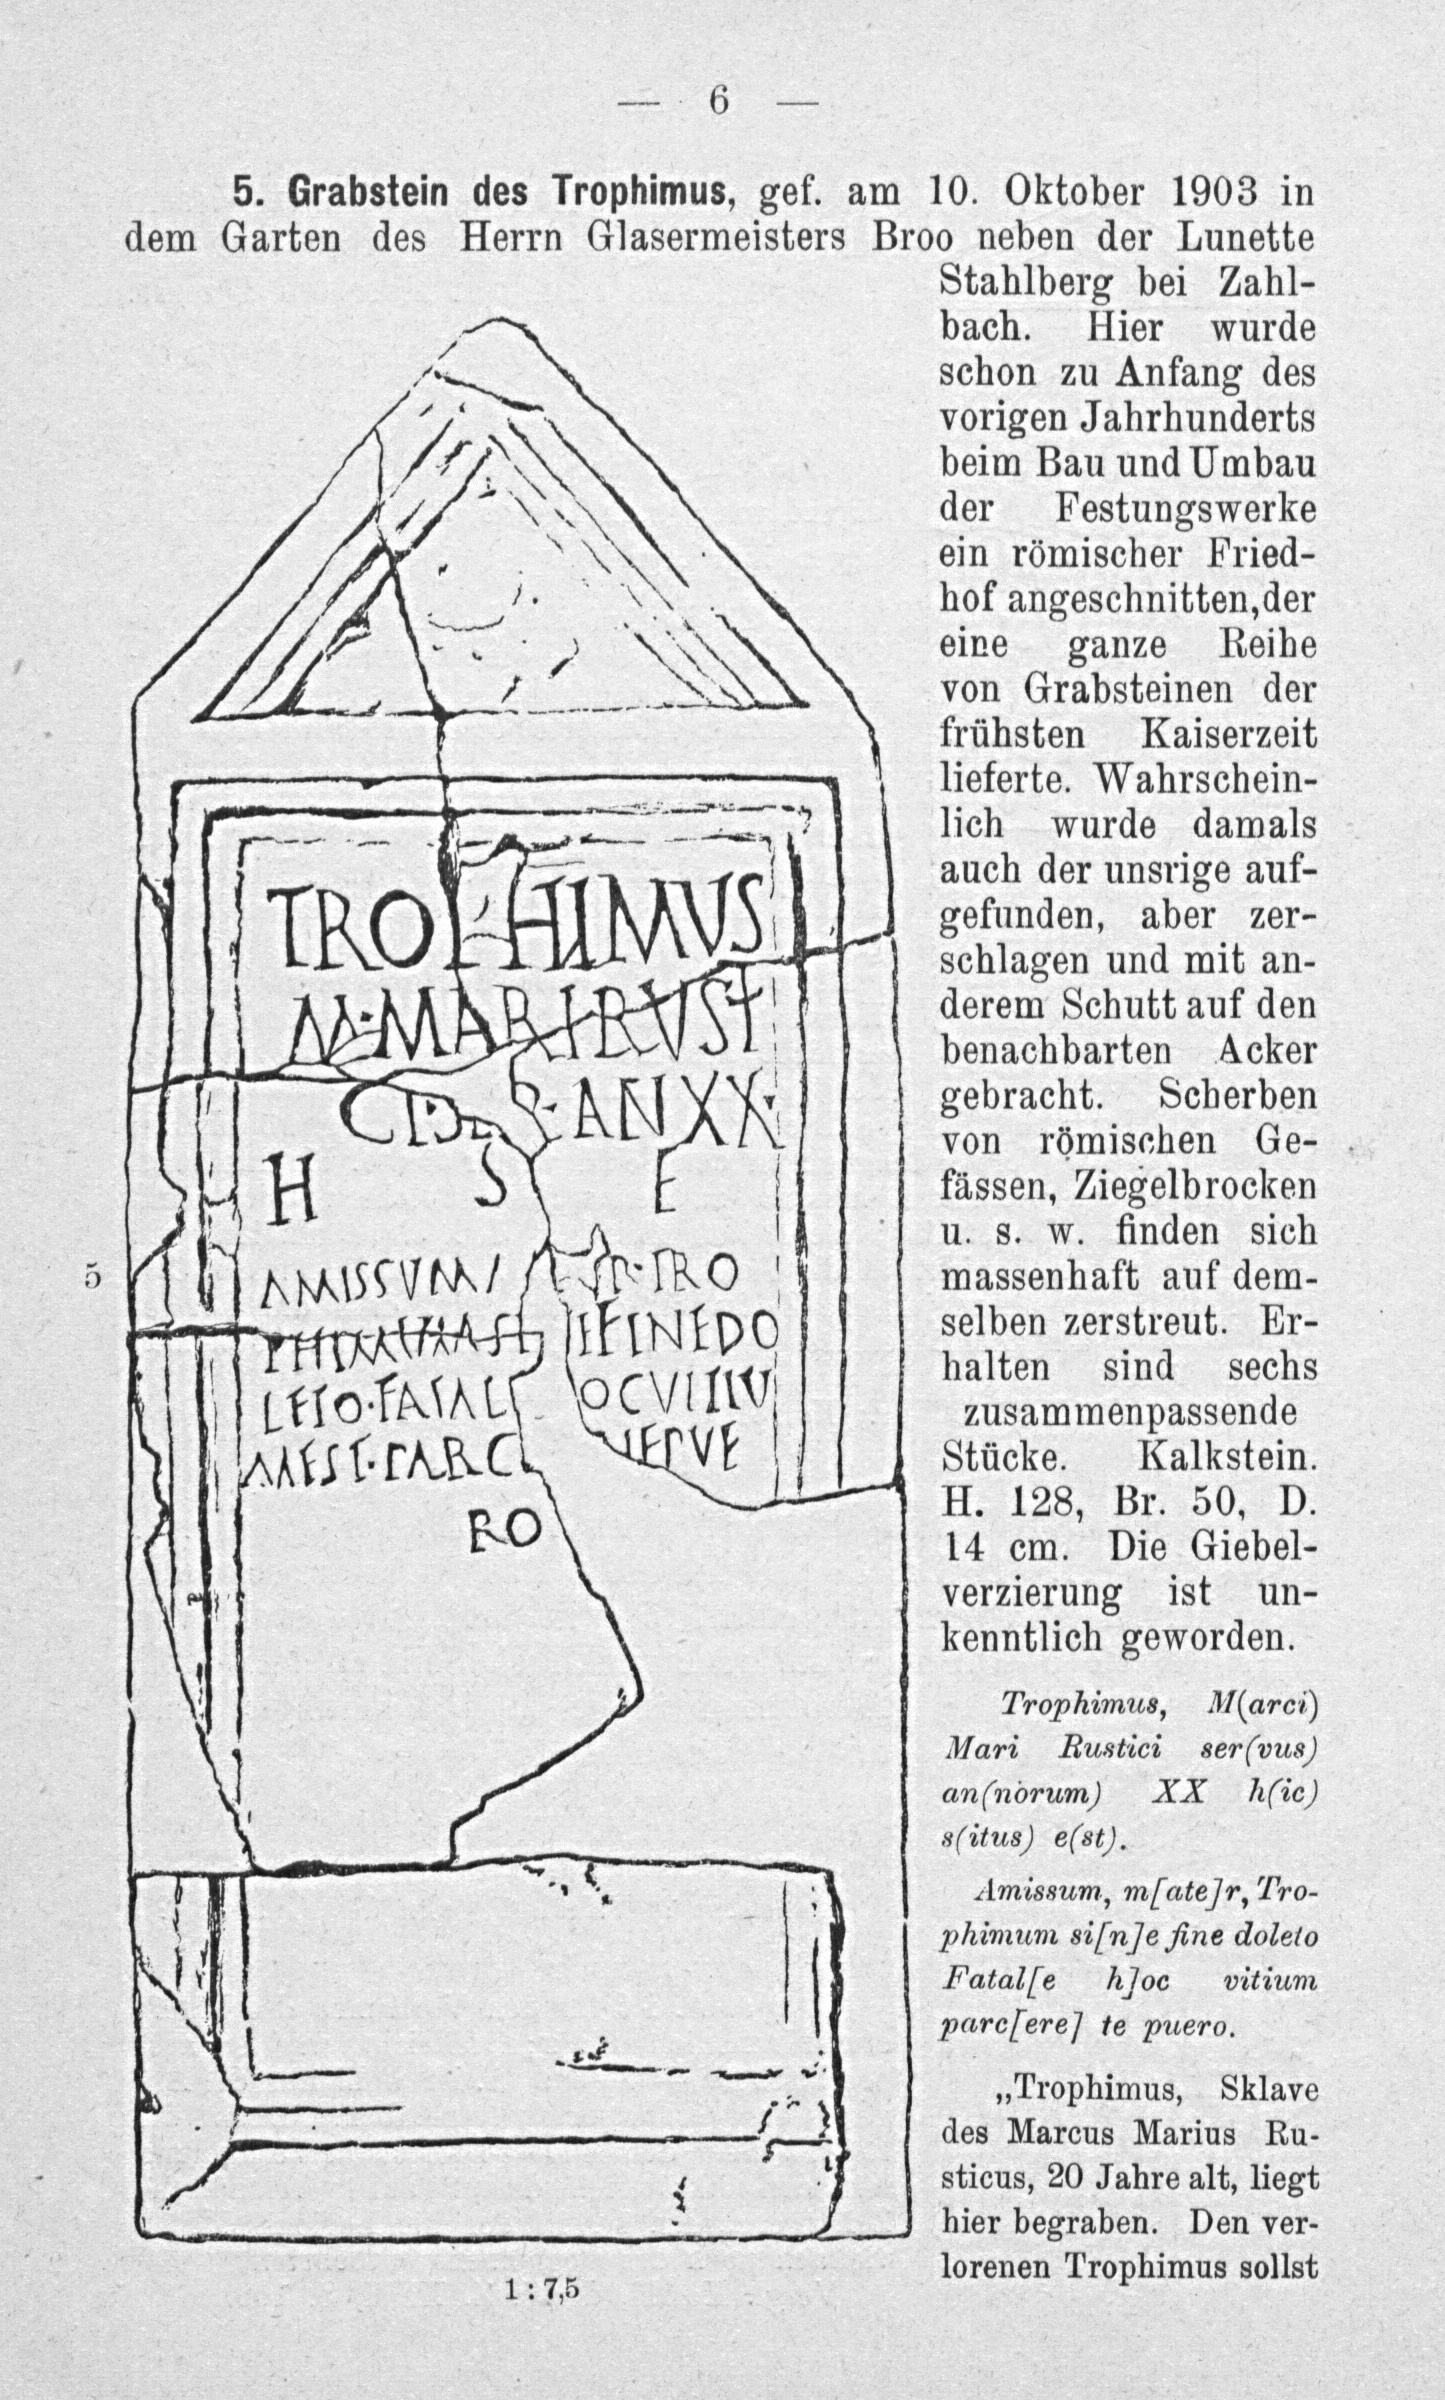 — 6 —
5. Grabstein des Trophimus, gef. am 10. Oktober 1903 in
dem Garten des Herrn Glasermeisters Broo neben der Lunette
Stahlberg bei Zahl-
bach. Hier wurde
schon zu Anfang des
vorigen Jahrhunderts
beim Bau und Umbau
der Festungswerke
ein römischer Fried-
hof angeschnitten, der
eine ganze Reihe
von Grabsteinen der
frühsten Kaiserzeit
lieferte. Wahrschein-
lich wurde damals
auch der unsrige auf-
gefunden, aber zer-
schlagen und mit an-
derem Schutt auf den
benachbarten Acker
gebracht. Scherben
von römischen Ge-
fässen, Ziegelbrocken
u. s. w. finden sich
massenhaft auf dem-
selben zerstreut. Er-
halten sind sechs
zusammenpassende
Stücke. Kalkstein.
H. 128, Br. 50, D.
14 cm. Die Giebel-
verzierung ist un-
kenntlich geworden.
Trophimus, M(arci)
Mari Rustici ser(vus)
an(norum) XX h(ic)
s(itus) e(st).
Amissum, m[ate]r, Tro-
phimum si[n]e fine doleto
Fatal[e h]oc vitium
parc[ere] te puero.
„Trophimus, Sklave
des Marcus Marius Ru-
sticus, 20 Jahre alt, liegt
hier begraben. Den ver-
lorenen Trophimus sollst
TROPHIMUS
M·MARI RVSTI
CI· S·ANXX·
H S E
5
AMISSVM R·TRO
PHIMVM SI E FINEDO
LETO·FATALE OC VITIU
MEST·PARC TEPVE
RO
1 : 7,5